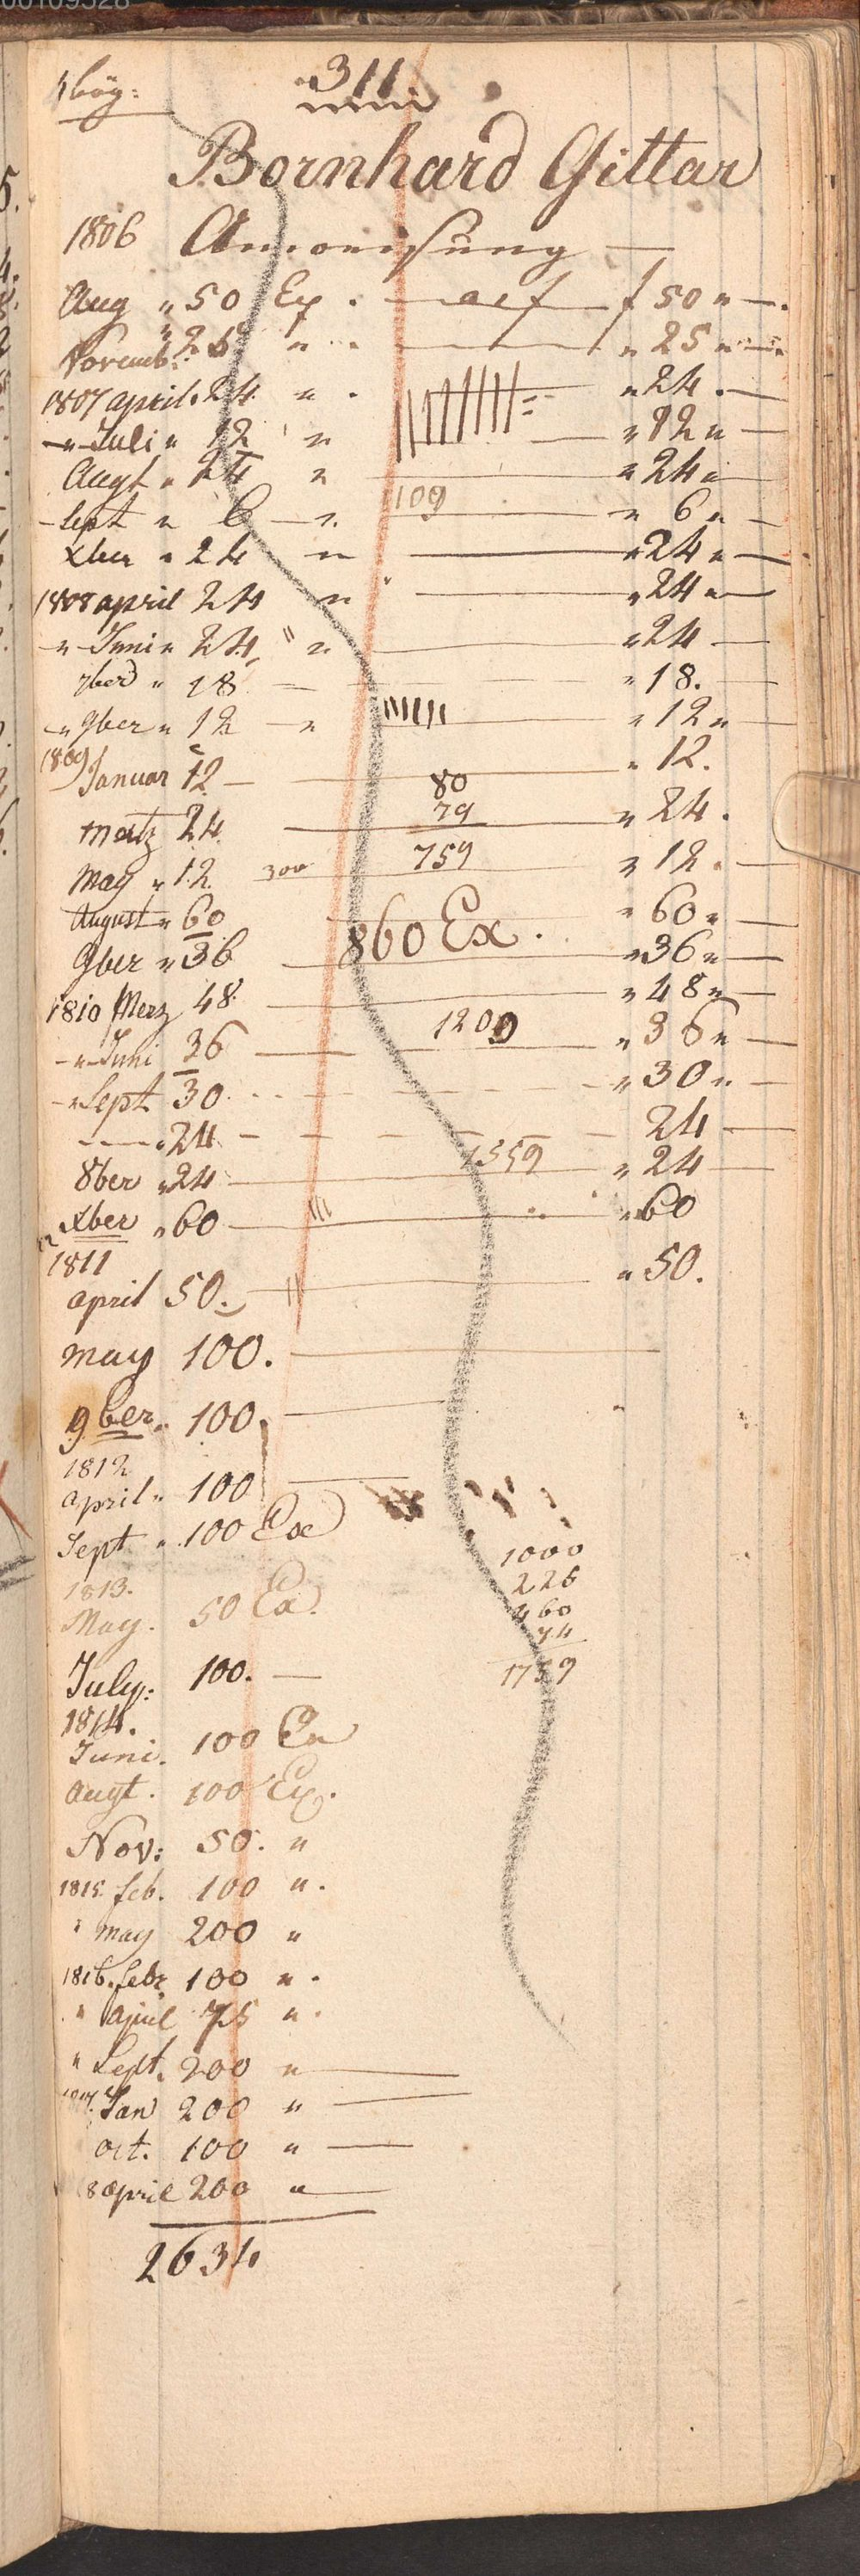 4 bög:
311
Bornhard Gittar
1806 Anweisung —
Aug „ 50 Ex . — auf — f 50 „ — .
Novemb: „ 25 „ . — „ 25 „ —
1807 april . 24 „ . „ 24 . —
— „ Juli „ 12 „ — „ 12 „ —
Augt „ 24 „ — „ 24 „ —
— Sept „ 6 — „ 109 — „ 6 „ —
Xber „ 24 „ — „ 24 „ —
1808 april 24 „ — „ 24 „ —
— „ Juni „ 24 „ — „ 24 —
7ber „ 18 — „ 18. —
— „ 9ber „ 12 — „ — „ 12 „ —
1809 Januar 12 — „ 12.
80
Mertz 24 — 79 — „ 24 .
May „ 12 300 759 — „ 12 . —
August „ 60 „ 60 „ —
860 Ex .
9ber „ 36 — „ 36 „ —
1810 Merz 48 — „ 48 „ —
— „ Juni 36 — 1209 „ 36 „ —
— „ Sept 30 — „ 30 „ —
— „ 24 — 24 —
8ber „ 24 — 1559 „ 24 —
Xber „ 60 — „ 60
1811
april 50. — „ 50.
may 100. —
9ber. 100. —
1812
april „ 100 —
Sept „ 100 Ex
1000
226
460
74
1759
1813.
May. 50 Ex.
July: 100. —
1814.
Juni. 100 Ex
Augt. 100 Ex.
Nov: 50. „
1815 feb. 100 „ .
„ may 200 „
1816. febr 100 „ .
„ April 75 „ .
„ Sept. 200 „ —
1817. Jan 200 „ —
oct. 100 „ —
18 april 200 „ —
2634